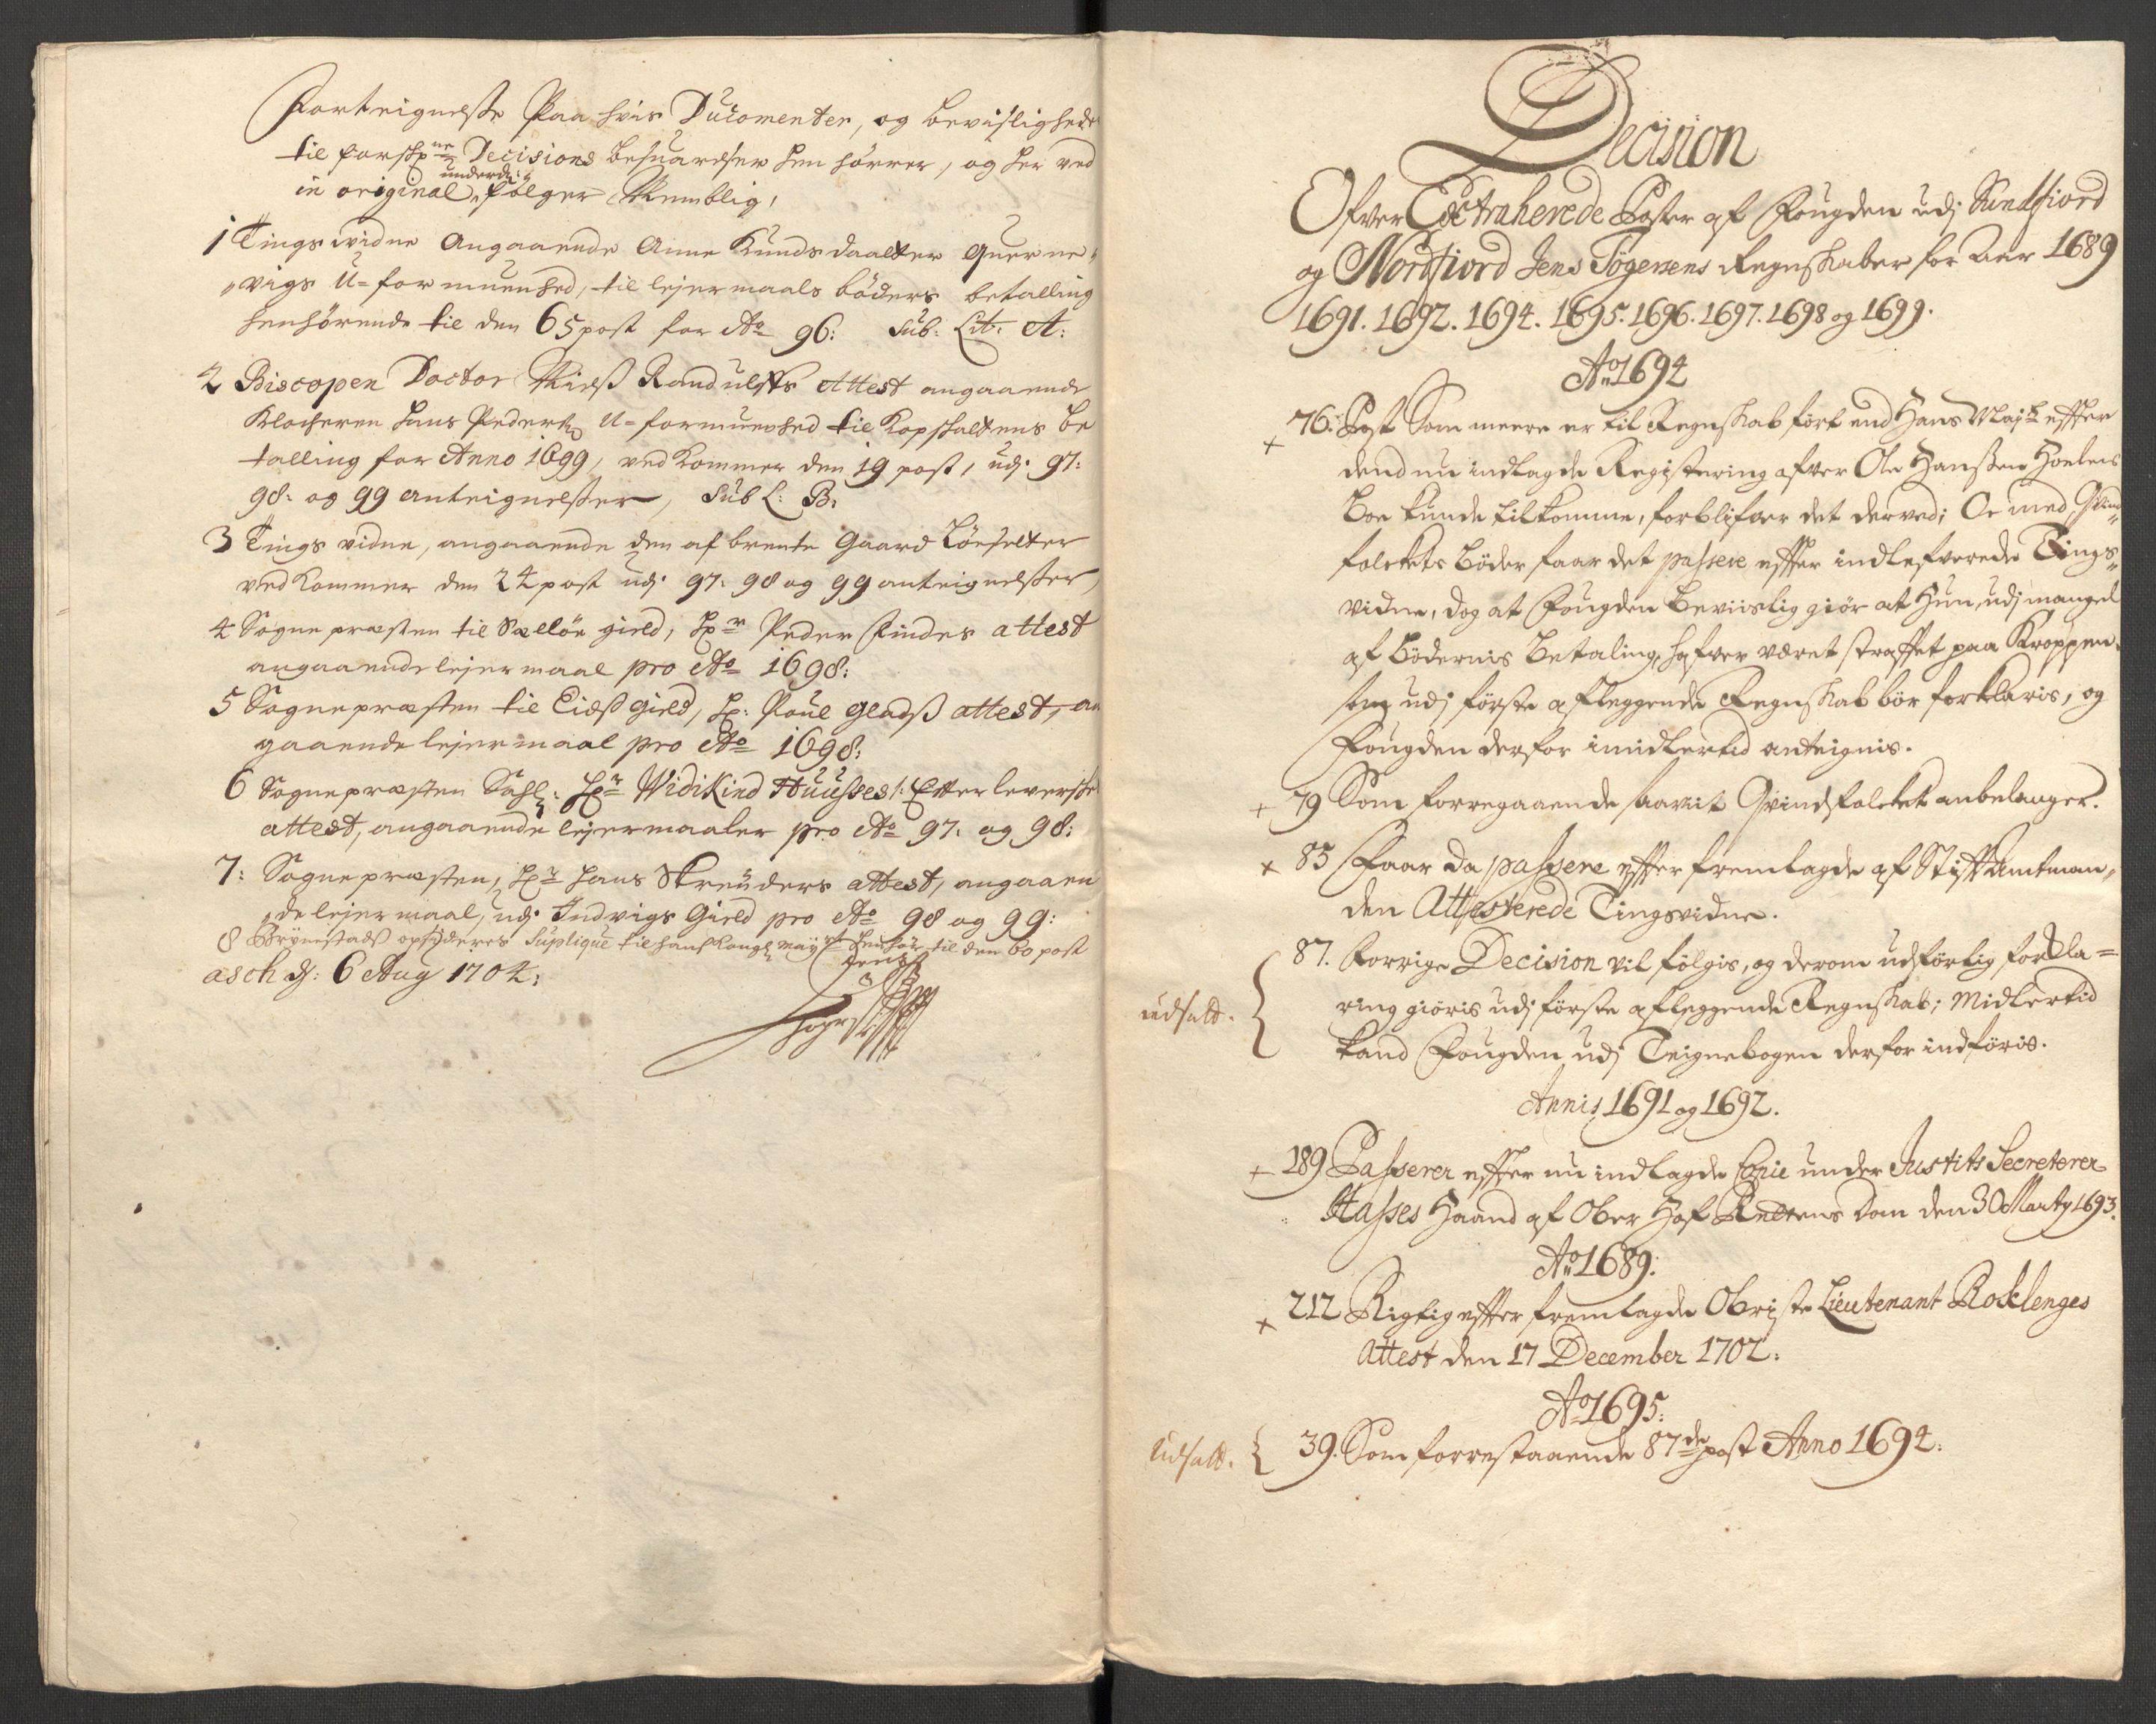 Forteignelse Paa hvis Ducomenter, og bevisligheder
til forschr:ne Decisions besuarelser hen hörrer, og her ved
in original underd: fölger Nemblig,
1 Tings widne Angaaende Anne Knudsdaatter Querne„
„vigs U=formuenhed, til lejermaals böders betalling
henhörende til den 65 post for Ao 96: Sub: Lit: A:
2 Biscopen Doctor Nielß Randulffs Attest angaaende
Klocheren Hans Peders: U=formuenhed til Kopschattens be
talling for Anno 1699, vedkommer den 19 post, udj 97:
98: og 99 anteignelsser, Sub L: B:
3 Tings vidne, angaaende den af brente Gaard Löeseter
vedkommer den 24 post udj 97: 98 og 99 anteignelsser,
4 Sogne præsten til Sællöe gield, Hr: Peder Findes attest
angaaende lejermaal pro Ao 1698:
5 Sognepræsten til Eidß gield, H: Poul Gladß attest, an
gaaende lejermaal pro Ao 1698:
6 Sognepræsten Sahl: Hr: Widikind Huusses /: Efterleversche
attest, angaaende lejermaaler pro Ao 97: og 98:
7: Sognepræsten, Hr: Hans Skreuders attest, angaaen
„de lejermaal, udj Indvigs Gield pro Ao 98 og 99:
8 Brynestads opsideres Suplique til hans Kongl: mayst: henhör til den 60 post
asch d: 6 Aug 1704:
Jens
Decision
Ofver Extraherede Poster af Fougden udj Sundfiord
og Nordfiord Jens Tögersens Regnskaber for Aar 1689
1691. 1692. 1694. 1695. 1696. 1697. 1698 og 1699.
Ao 1694
+ 76: Post Som meere er til Regnskab fört end Hans Majts: effter
dend nu indlagde Registering ofver Ole Hanßen Hoelens
Boe kunde tilkomme, forblifver det derved; Oc med Qvind„
folckets Böder faar det passere effter indlefverede Tings„
vidne, dog at Fougden beviislig giör at Hun, udj mangel
af Bödernis Betaling, hafver været straffet paa Kroppen,
som udj förste aflæggende Regnskab bör forklaris, og
Fougden derfor imidlertid anteignis.
+ 79 Som forregaaende saavit Qvindfolcket anbelanger.
+ 85 Faar da passere effter fremlagde af Stiftamtman„
den Attesterede Tingsvidne.
udsatt. { 87. Forrige Decision vil fölgis, og derom udförlig forkla=
ring giöris udj förste aflæggende Regnskab; Midlertid
kand Fougden udj Teignebogen derfor indföris.
Annis 1691 og 1692.
+ 189 Passerer effter nu indlagde Copie under Justits Secreterer
Hasses Haand af Ober Hof Rettens Dom den 30 Marty 1693.
Ao 1689:
+ 212 Rigtig effter fremlagde Obriste Lieutenant Rocklenges
Attest den 17 December 1702:
Ao 1695:
udsatt. { 39. Som forrestaaende 87de post Anno 1694: